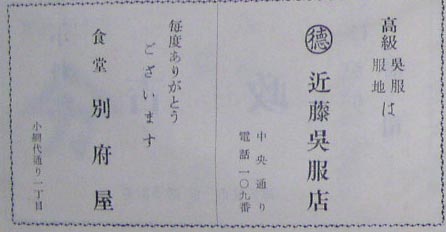 高級呉服
服地は
㊝近藤呉服店
中央通り
電話一〇九番
毎度ありがとう
ございます
食堂 別府屋
小網代通り一丁目